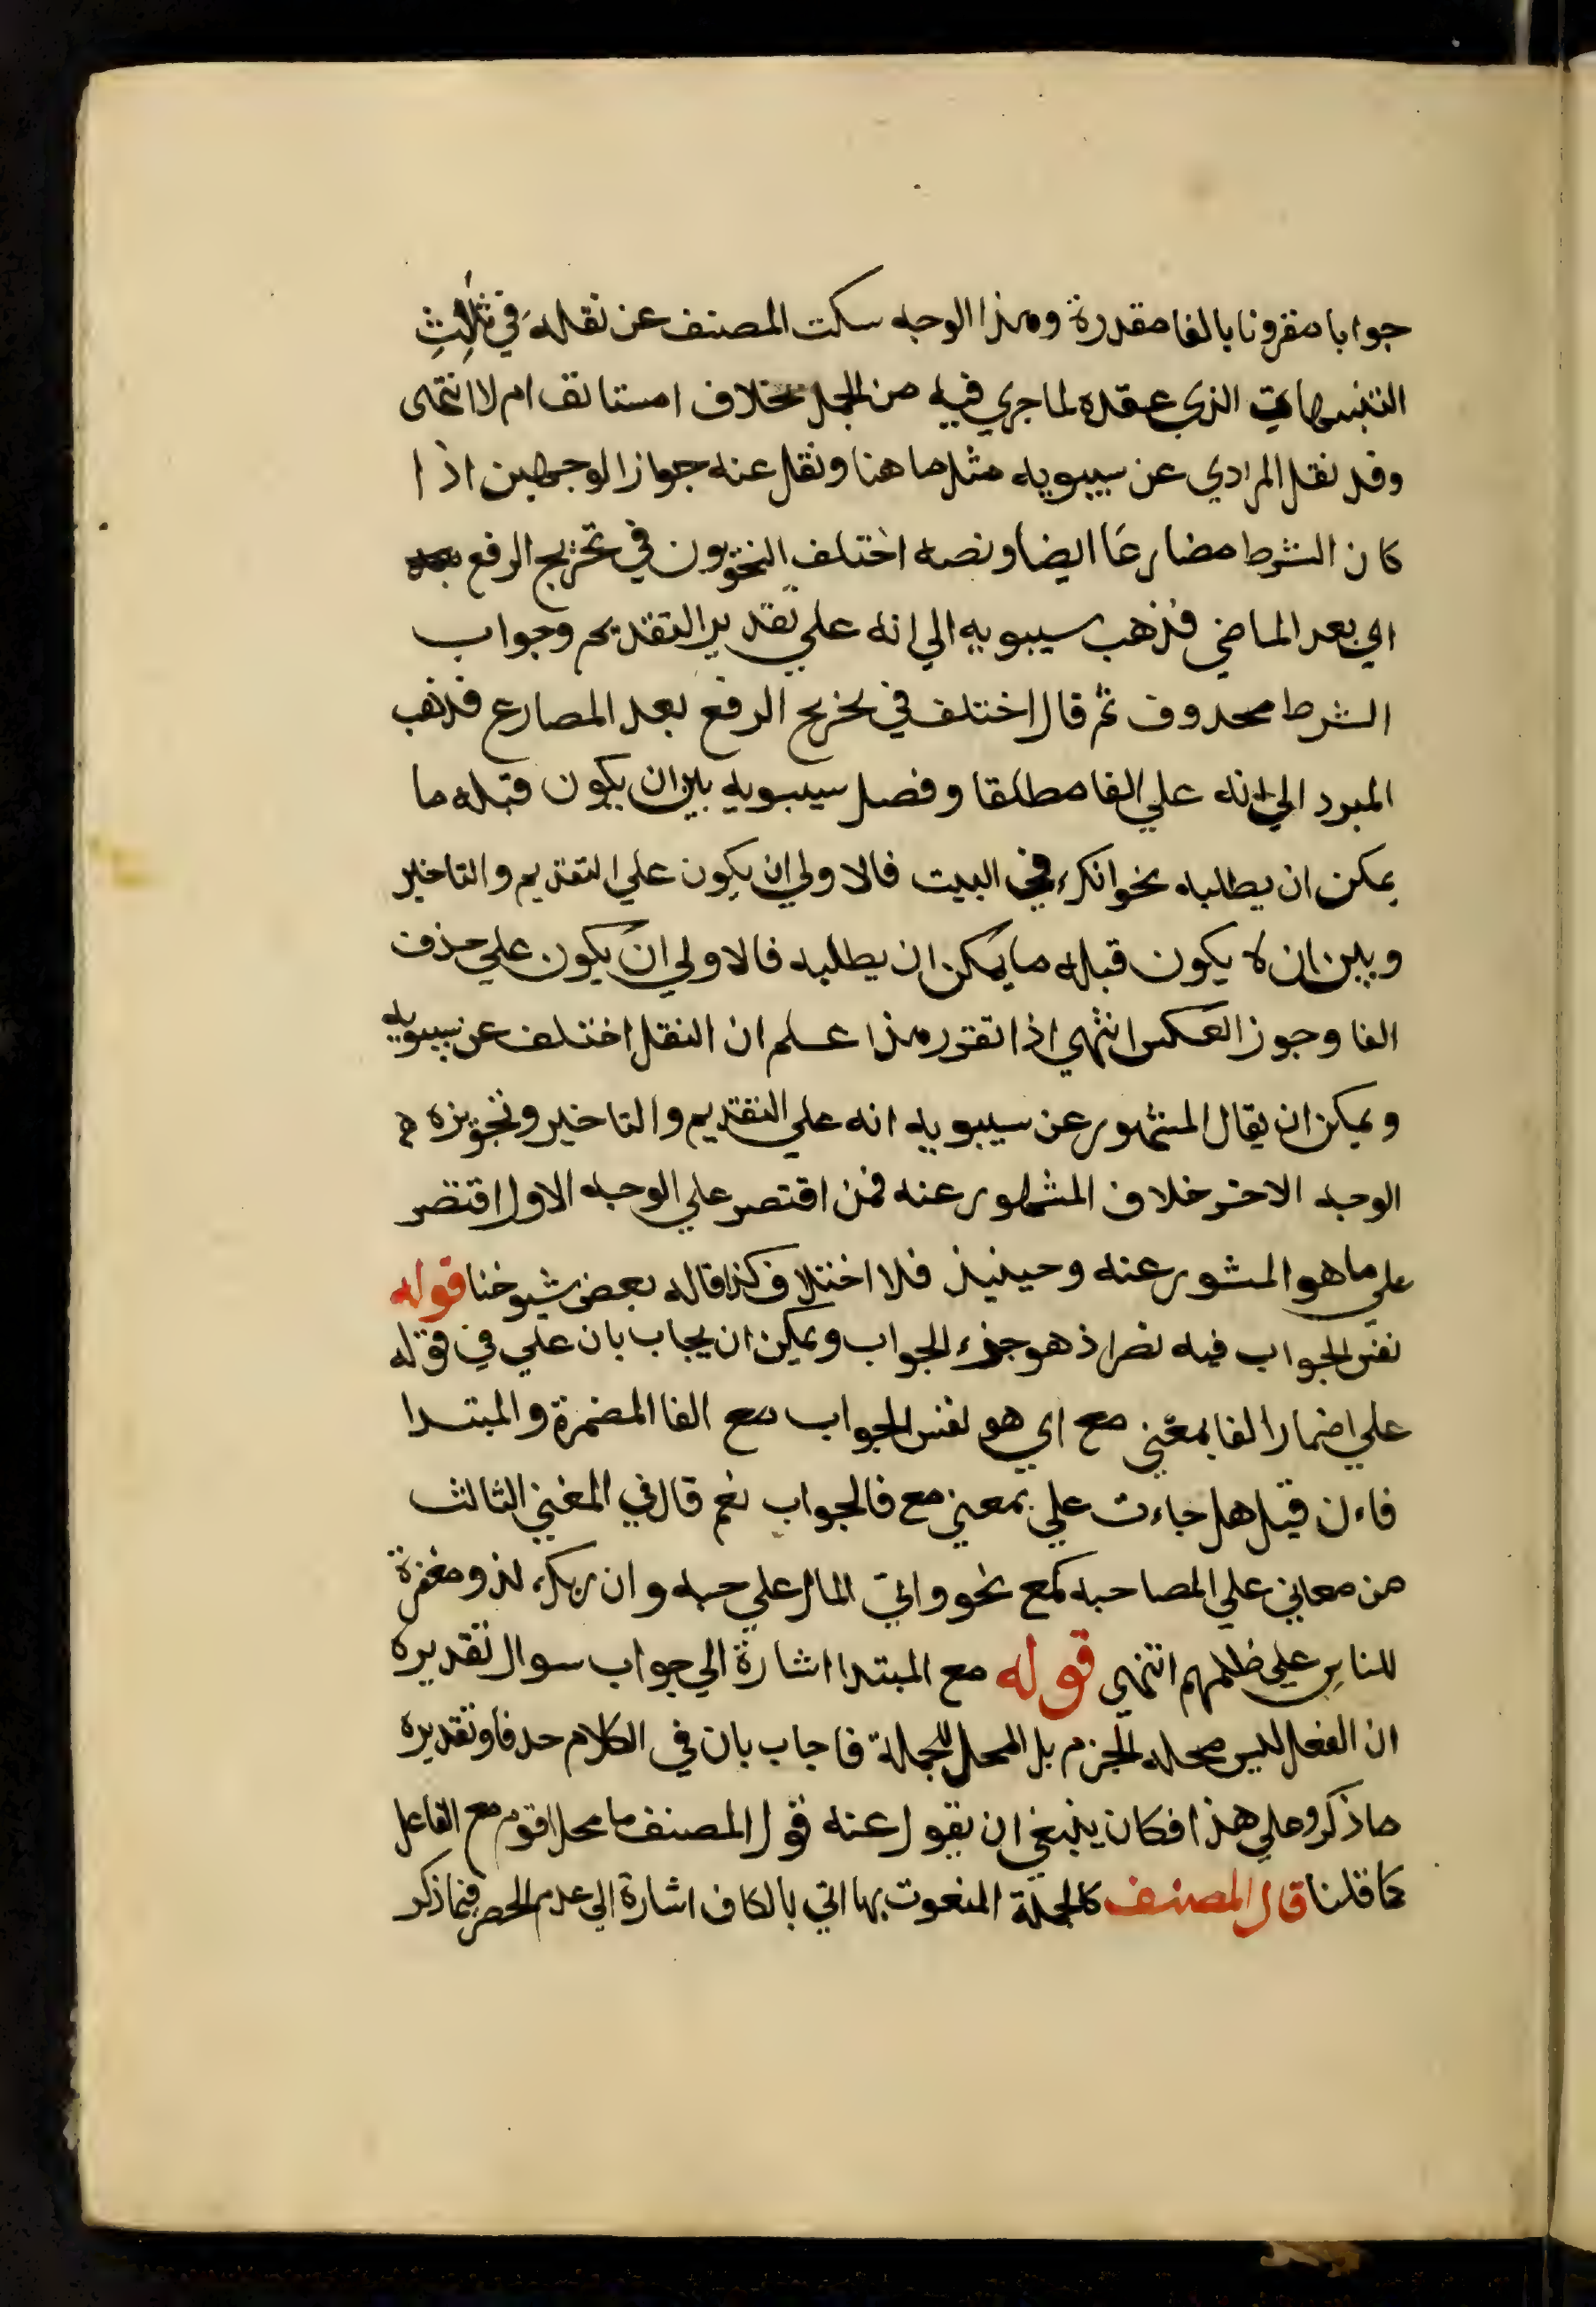 جوابا مقرونا بالفا مقدرة وهذا الوجه سكت المصنف عن نقله في ثالث
التنبيهات الذي عقده لما جري فيه من الجمل خلاف امستانف ام لا انتهى
وقد نقل المرادي عن سيبويه مثل ما هنا ونقل عنه جواز الوجهين اذا
كان الشرط مضارعا ايضا ونصه اختلف النحويون في تخريج الرفع
اي بعد الماضي فذهب سيبويه الي انه علي تقدير التقديم وجواب
الشرط محذوف ثم قال اختلف في تخريج الرفع بعد المصارع فذهب
المبرد الي انه علي الفا مطلقا وفصل سيبويه بين ان يكون قبله ما
يمكن ان يطلبه نحو انك في البيت فالاولي ان يكون علي التقديم والتاخير
وبين ان لا يكون قبله ما يمكن ان يطلبه فالاولي ان يكون علي حذف
الفا وجوز العكس انتهي اذا تقرر هذا علم ان النقل اختلف عن سيبويه
ويمكن ان يقال المشهور عن سيبويه انه علي التقديم والتاخير وتجويزه
الوجه الاخر خلاف المشهور عنه فمن اقتصر علي الوجه الاول اقتصر
علي ما هو المشور عنه وحينيذ فلا اختلاف كذا قاله بعض شيوخنا قوله
نفس الجواب فيه نضر اذ هو جزء الجواب ويمكن ان يجاب بان علي في قوله
علي اضمار الفا بمعني مع اي هو نفس الجواب مع الفا المضمرة والمبتدا
فاءن قيل هل جاءت علي بمعني مع فالجواب نعم قال في المغني الثالث
من معاني علي المصاحبه كمع نحو واتي المال علي حبه وان ربك لذو مغفرة
للناس علي ظلمهم انتهي قوله مع المبتدا اشارة الي جواب سوال تقديره
ان الفعل ليس محله الجزم بل المحل للجملة فاجاب بان في الكلام حدفا وتقديره
ما ذكر وعلي هذا فكان ينبغي ان يقول عنه قول المصنف ما محل اقوم مع الفاعل
كما قلنا قال المصنف كالجملة المنعوت بها اتي بالكاف اشارة الي عدم الحصر فيما ذكر